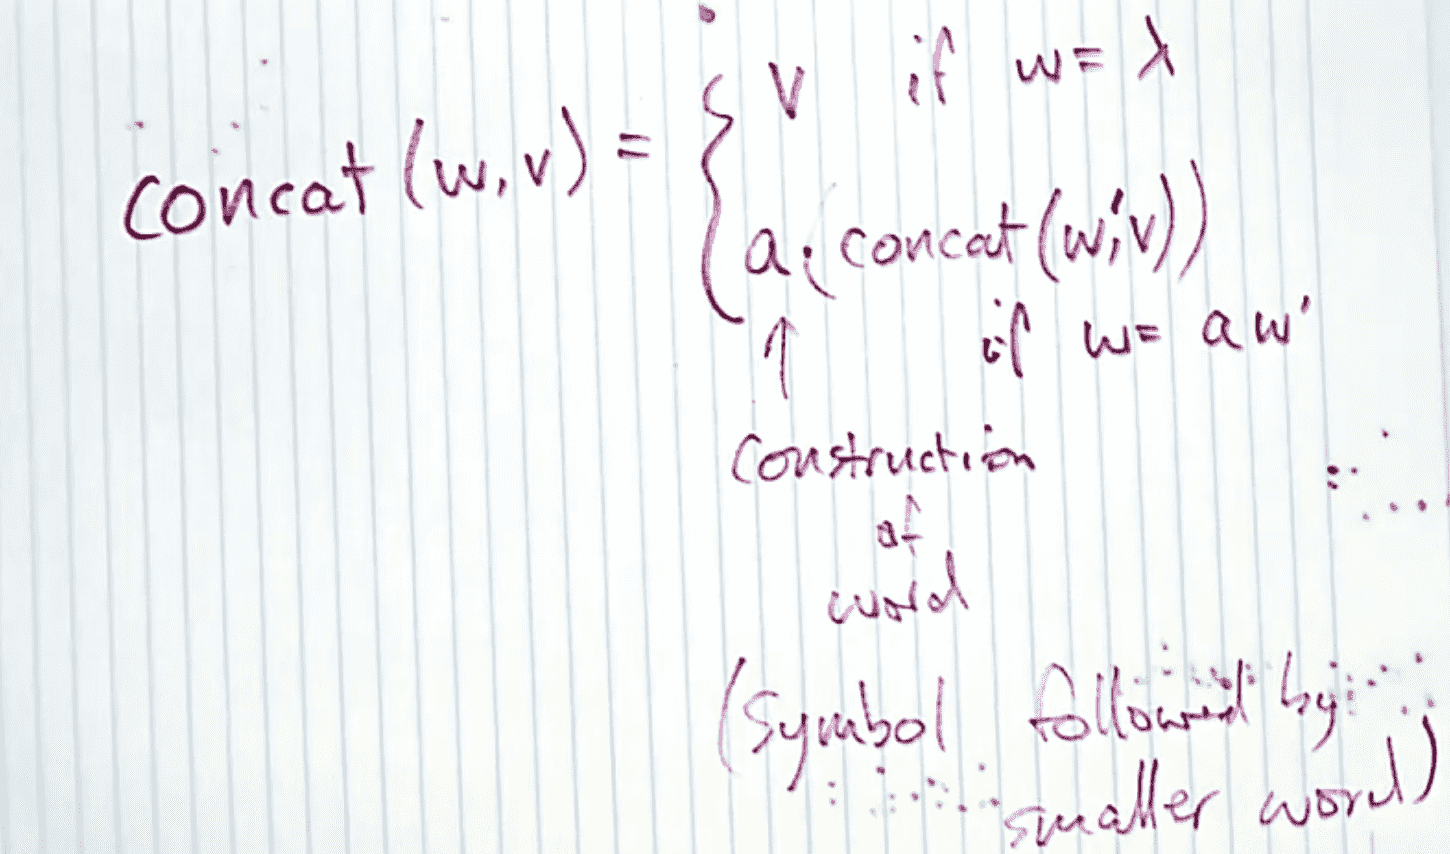 concat (w, v) = { v if w = λ
a . (concat (w', v))
if w = a w'
↑
construction
of
word
(symbol followed by
smaller word)